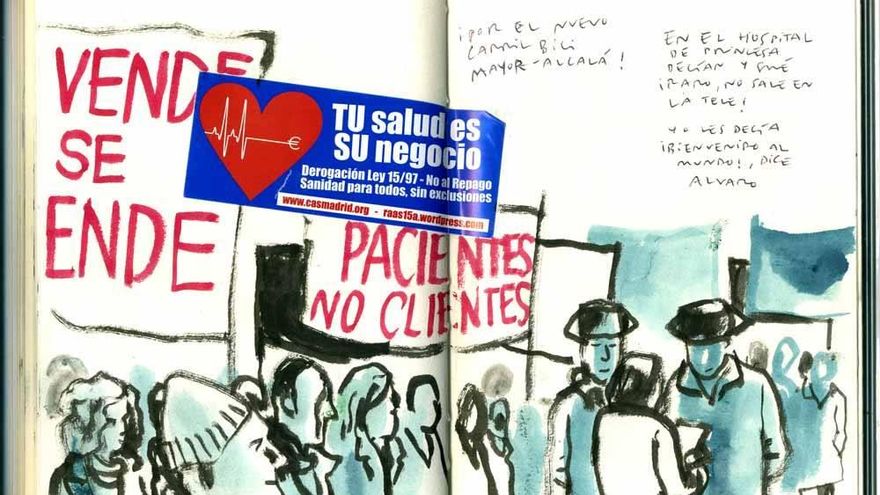 ¡POR EL NUEVO
CARRIL BICI
MAYOR-ALCALÁ!
EN EL HOSPITAL
DE PRINCESA
DECÍAN Y QUÉ
¡RARO, NO SALE EN
LA TELE!
YO LES DECÍA
¡BIENVENIDO AL
MUNDO!, DICE
ALVARO
VENDE
SE
ENDE
TU salud es
SU negocio
Derogación Ley 15/97 - No al Repago
Sanidad para todos, sin exclusiones
www.casmadrid.org - raas15a.wordpress.com
€
PACIENTES
NO CLIENTES